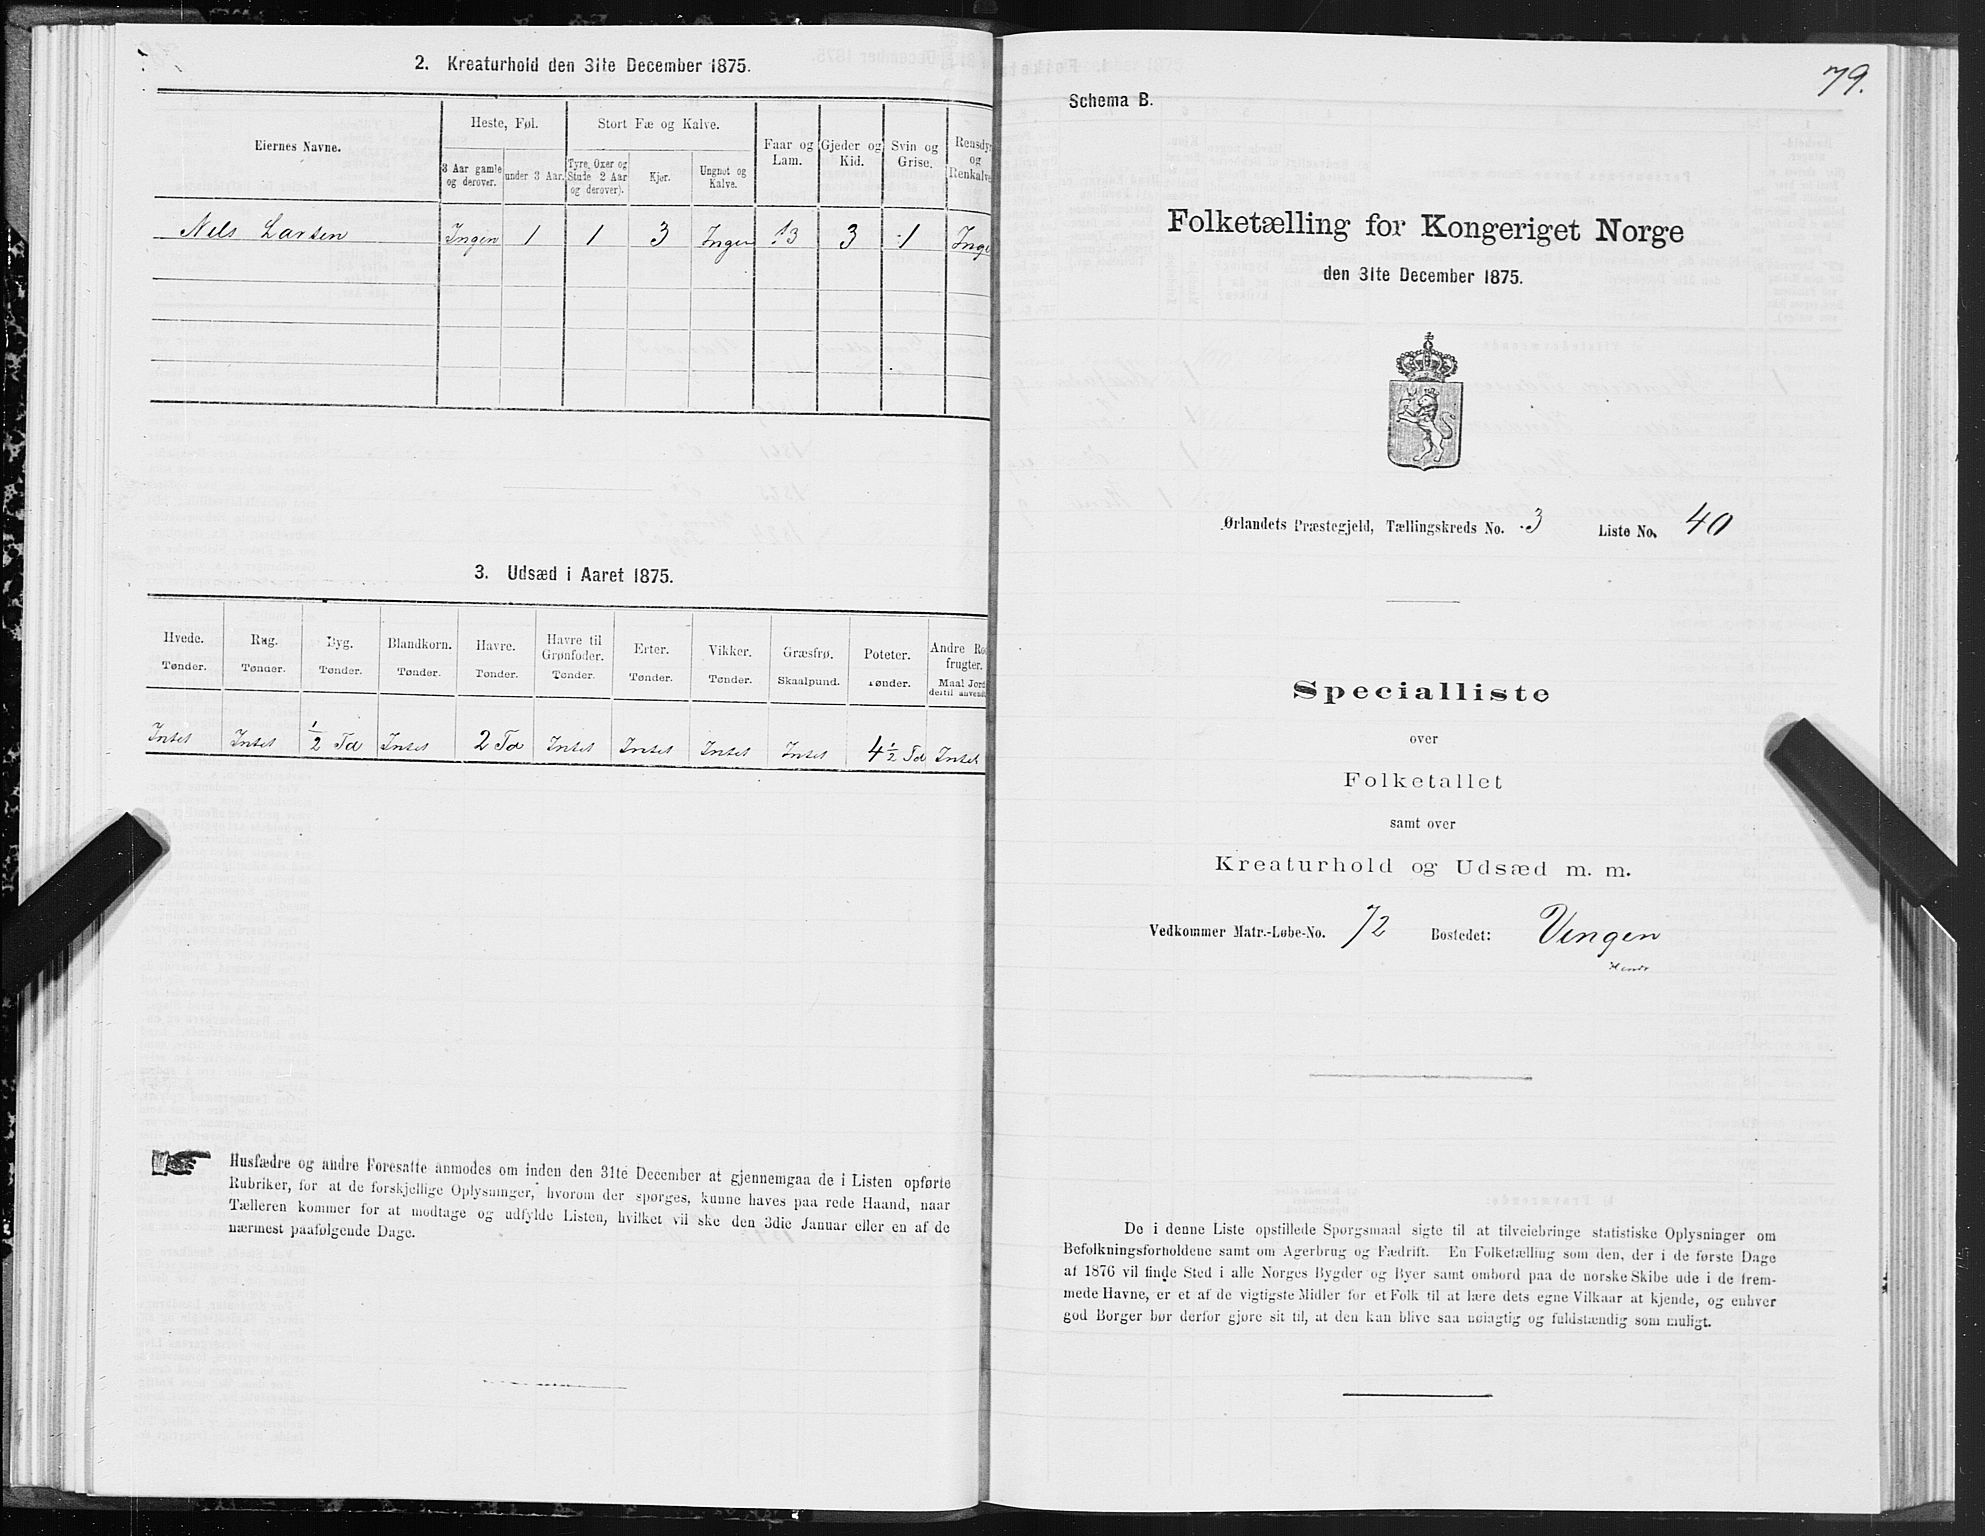 2. Kreaturhold den 31te December 1875.
Eiernes Navne.
Heste, Føl.
Stort Fæ og Kalve.
Faar og Lam.
Gjeder og Kid.
Svin og Grise.
Rensdyr og Renkalve
3 Aar gamle og derover.
under 3 Aar.
Tyre, Oxer og Stude 2 Aar og derover).
Kjør.
Ungnøt og Kalve.
Nels Larsen Ingen 1 1 3 Ingen 13 3 1 Inge
3. Udsæd i Aaret 1875.
Hvede. Rug. Byg. Blandkorn. Havre. Havre til Grønfoder. Erter. Vikker. Græsfrø. Poteter. Andre Ro frugter.
Tønder. Tønder. Tønder. Tønder. Tønder. Tønder. Tønder. Tønder. Skaalpund. Tønder. Maal Jord dertil anvend
Intet Intet 1/2 Td Intet 2 Td Intet Intet Intet Intet 4 1/2 Td Intet
Husfædre og andre Foresatte anmodes om inden den 31te December at gjennemgaa de i Listen opførte
Rubriker, for at de forskjellige Oplysninger, hvorom der spørges, kunne haves paa rede Haand, naar
Tælleren kommer for at modtage og udfylde Listen, hvilket vil ske den 3die Januar eller en af de
nærmest paafølgende Dage.
79.
Schema B.
Folketælling for Kongeriget Norge
den 31te December 1875.
Ørlandets Præstegjeld, Tællingskreds No. 3 Liste No. 40
Specialliste
over
Folketallet
samt over
Kreaturhold og Udsæd m. m.
Vedkommer Matr.-Løbe-No. 72 Bostedet: Vingen
De i denne Liste opstillede Spørgsmaal sigte til at tilveiebringe statistiske Oplysninger om
Befolkningsforholdene samt om Agerbrug og Fædrift. En Folketælling som den, der i de første Dage
af 1876 vil finde Sted i alle Norges Bygder og Byer samt ombord paa de norske Skibe ude i de frem-
mede Havne, er et af de vigtigste Midler for et Folk til at lære dets egne Vilkaar at kjende, og enhver
god Borger bør derfor gjøre sit til, at den kan blive saa nøiagtig og fuldstændig som muligt.